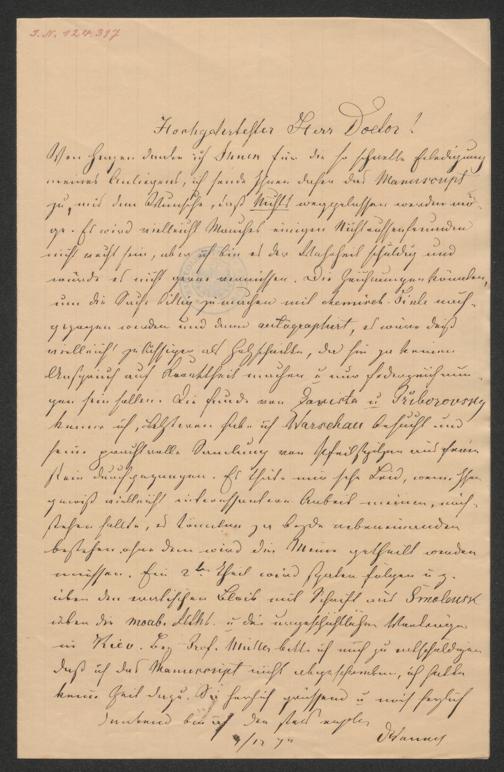 I.N. 124.317
Hochgeehrtester Herr Doctor!
Von Herzen danke ich Ihnen für die so schnelle Erledigung
meines Anliegens, ich sende Ihnen daher das Manuscript
zu, mit dem Wunsche, daß Nichts weggelassen werden mö-
ge. Es wird vielleicht Manches einigen
nicht recht sein, aber ich bin es der Wahrheit schuldig und
würde es nicht gerne vermissen. Die Zeichnungen könnten,
um die Sache billig zu machen mit chemisch. Tinte nach-
gezogen werden und dann autographirt, es wäre dieß
vielleicht zulässiger als Holzschnitte, da sie ja keinen
Anspruch auf machen u nur Federzeichnun-
gen sein sollen. Die Funde von Zawisza u Przborovsky
kenne ich, letzteren habe ich Warschau besucht und
seine prachtvolle Samlung von Pfeilspitzen aus Feuer
stein durchgegangen. Es thäte mir sehr Leid, wenn Ihre
gewiß vielleicht interessantere Arbeit meiner, nach-
stehen sollte, es könnten ja beide nebeneinander
bestehen, ohne dem wird die Meine getheilt werden
müssen. Ein 2ter Theil wird später folgen u z.
über den Bleib mit Schrift aus Smolensk
über die moab. u die
in Kiev. Bey Prof. Müller bitte ich mich zu entschuldigen
daß ich das Manuscript nicht abgeschrieben, ich hatte
keine Zeit dazu. Sie herzlich grüssend u mich herzlich
dankend bin ich der stets ergebe
9/12 74